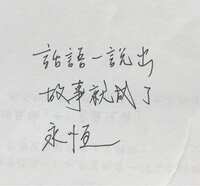 話語一說出
故事就成了
永恒